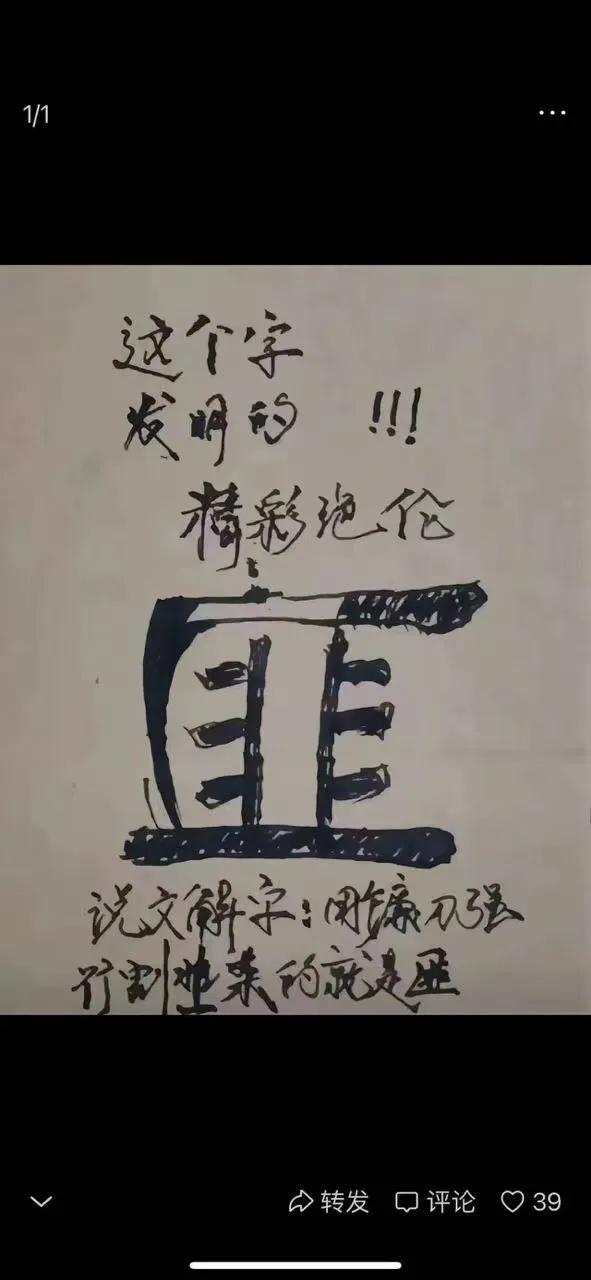 1/1
这个字
发明的 !!!
精彩绝伦
匪
说文解字：用镰刀强
行割韭菜的就是匪
转发 评论 39